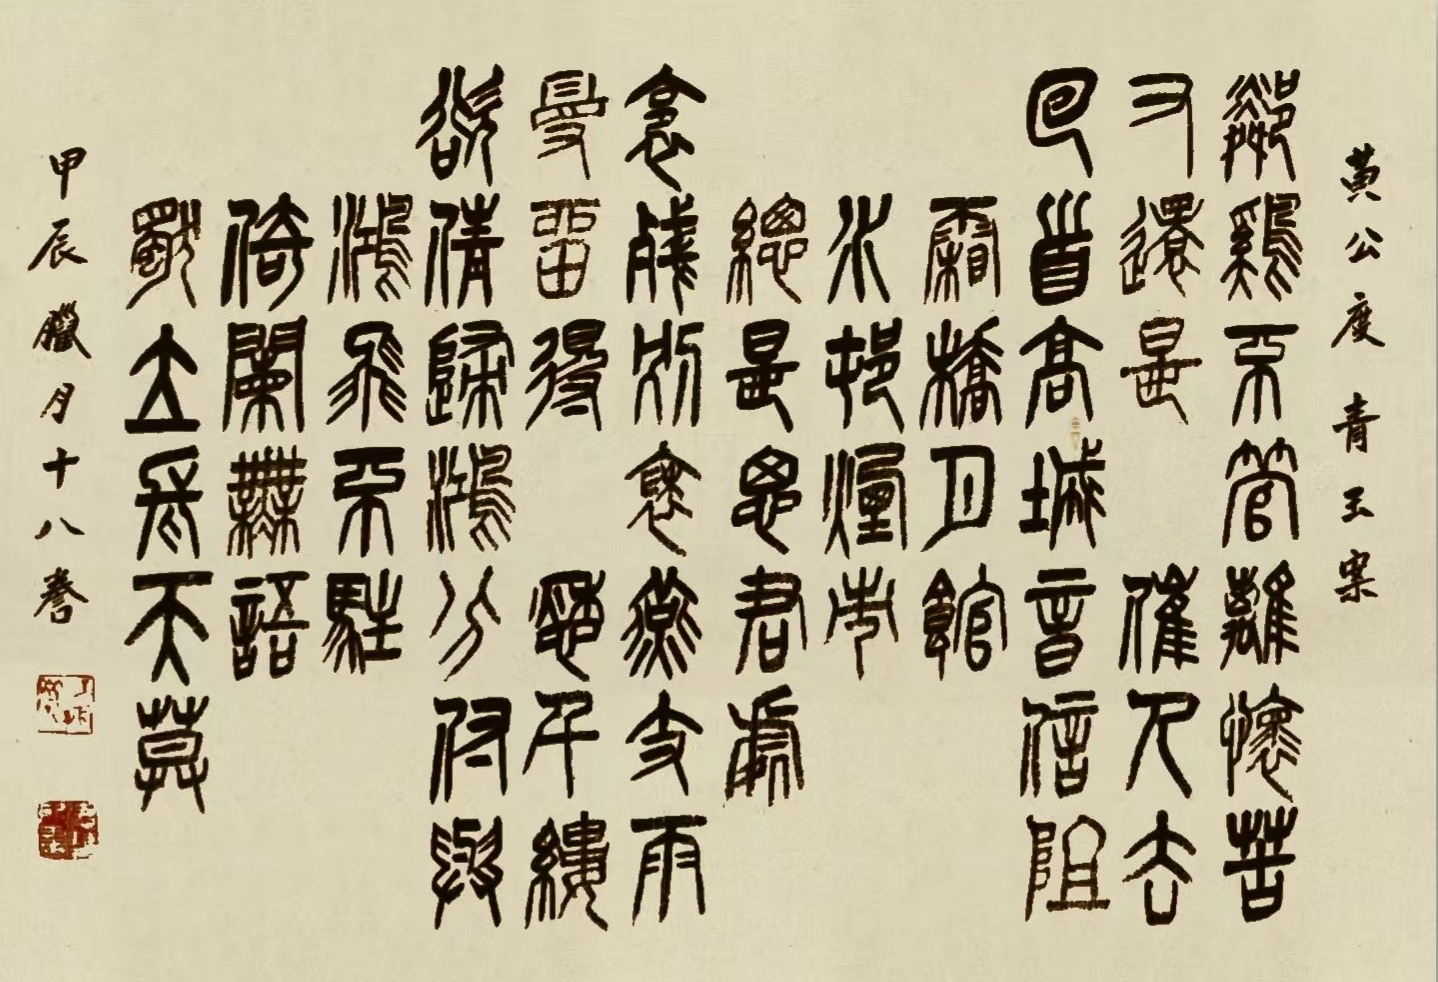 黄公度 青玉案
鄰鷄不管離懷苦
又還是 催人去
回首高城音信阻
霜橋月館
水邨煙市
總是思君處
裛殘別袖燕支雨
曼留得 愁千縷
欲倩歸鴻分付與
鴻飛不駐
倚闌無語
獨立長天莫
甲辰臘月十八